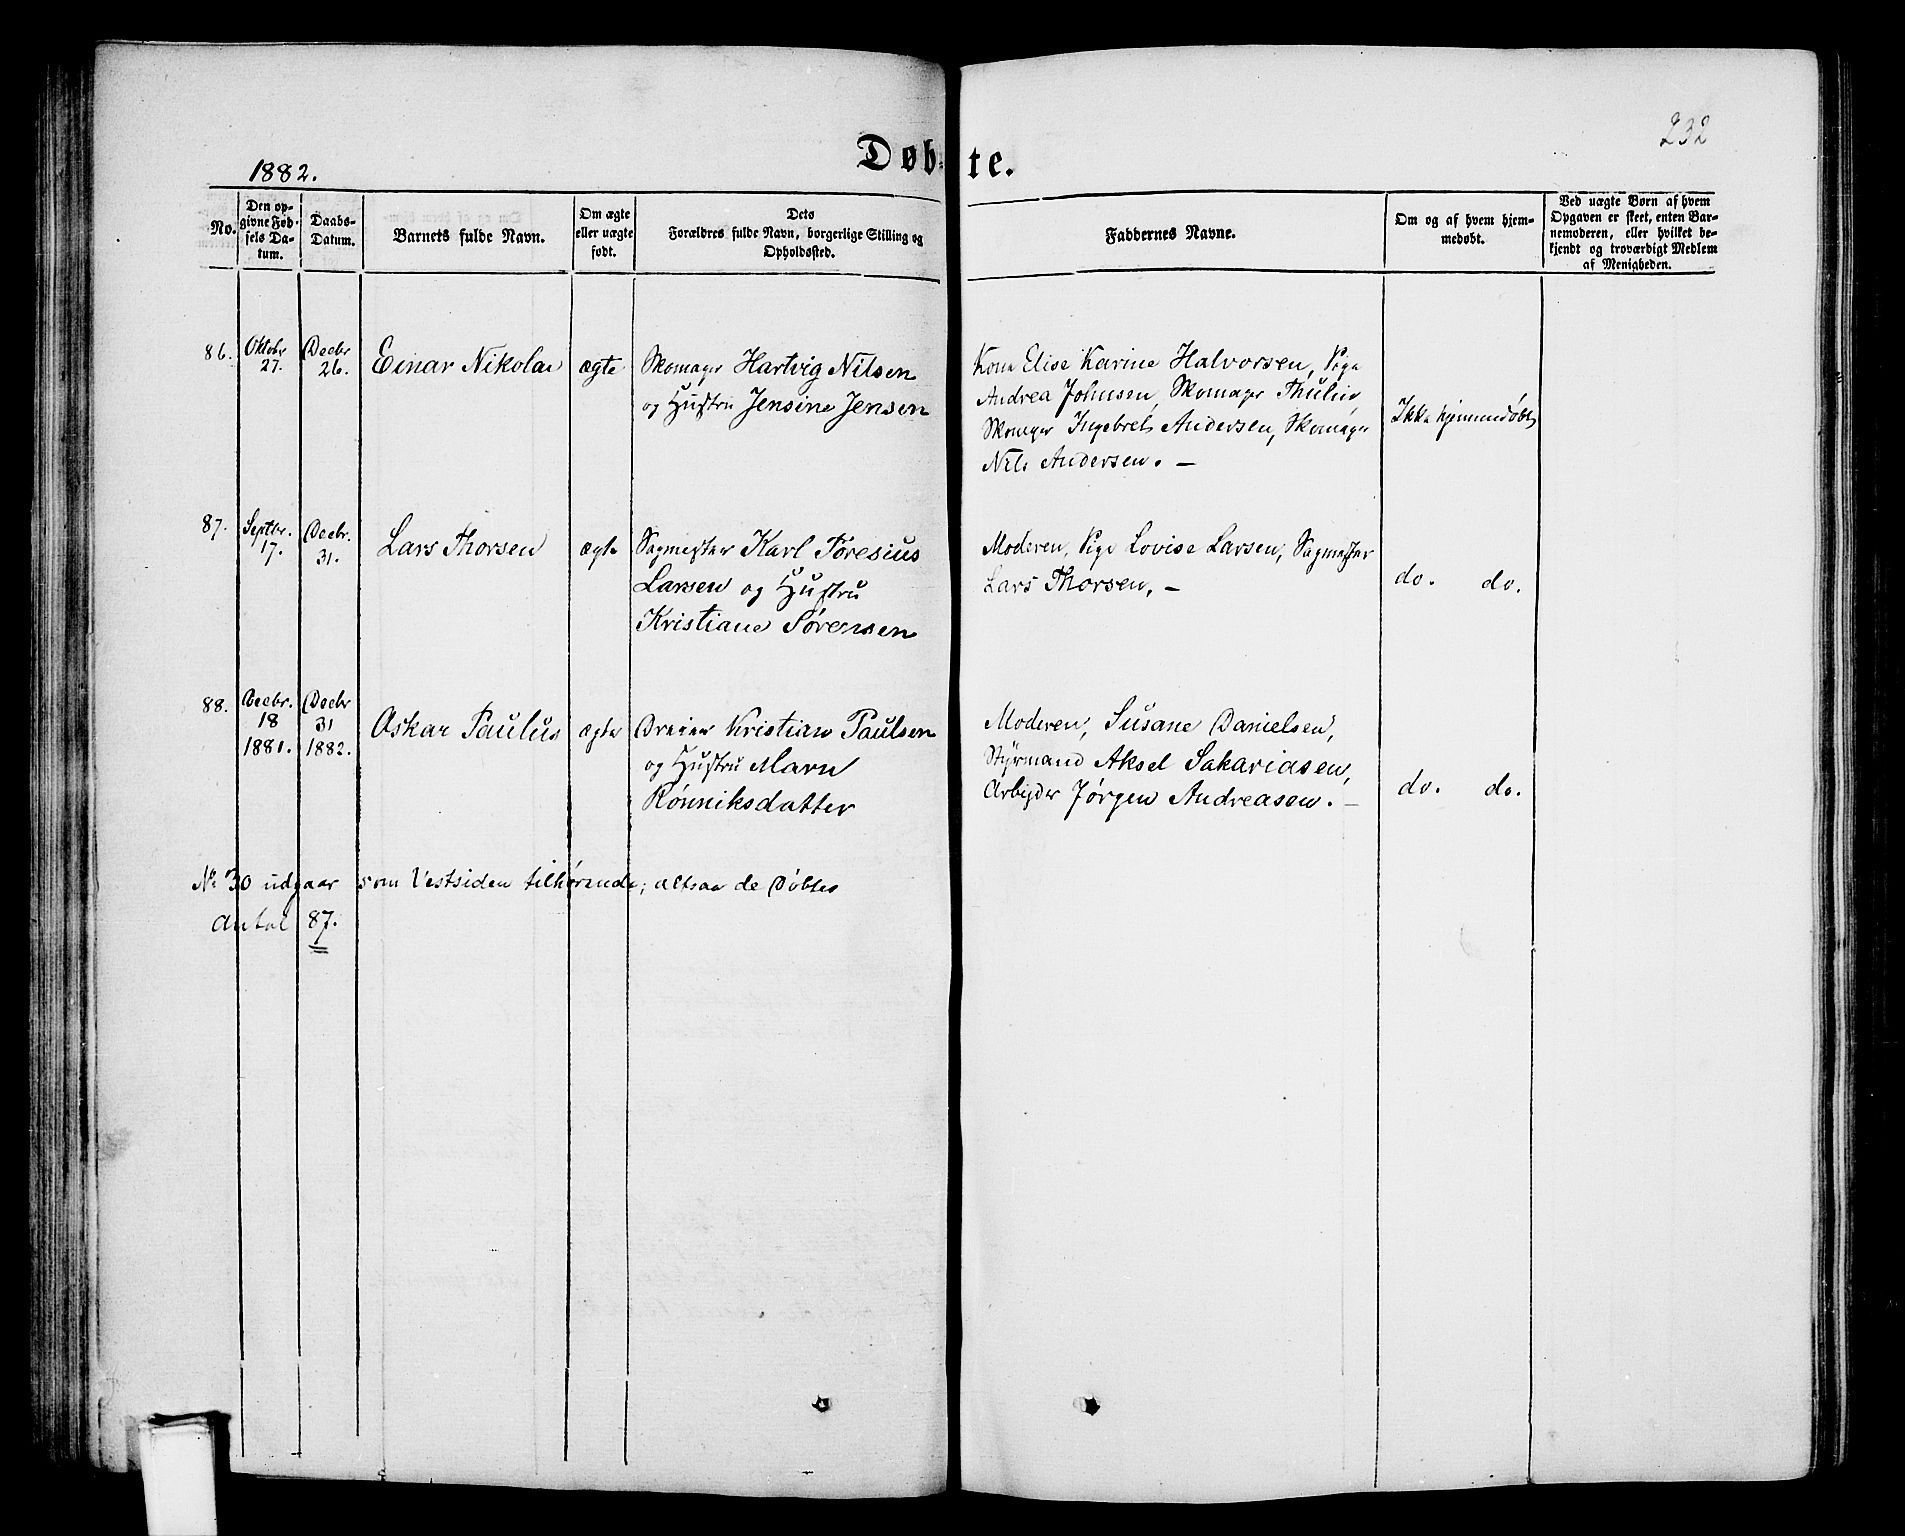 232
1882.
Døbte.
No.
Den op-
givne Fød-
sels Da-
tum.
Daabs-
Datum.
Barnets fulde Navn.
Om ægte
eller uægte
født.
Dets
Forældres fulde Navn, borgerlige Stilling og
Opholdssted.
Faddernes Navne.
Om og af hvem hjem-
medøbt.
Ved uægte Børn af hvem
Opgaven er skeet, enten Bar-
nemoderen, eller hvilket be-
kjendt og troværdigt Medlem
af Menigheden.
86.
Oktobr
27.
Decbr
26.
Einar Nikolai
ægte
Skomager Hartvig Nilsen
og Hustru Jensine Jensen
Kone Elise Karine Halvorsen, Pige
Andrea Johnsen, Skomager Thulin
Skomager Ingebret Andersen, Skomager
Nils Andersen. –
Ikke hjemmedøbt
87.
Septbr.
17.
Decbr.
31.
Lars Thorsen
ægte
Sagmester Karl Føresius
Larsen og Hustru
Kristiane Sørensen
Moderen, Pige Lovise Larsen, Sagmester
Lars Thorsen, –
do. do.
88.
Decbr.
18
1881.
Decbr
31
1882.
Oskar Paulus
ægte
Dreier Kristian Paulsen
og Hustru Maren
Rønniksdatter
Moderen, Susane Danielsen,
Styrmand Aksel Sakariasen,
Arbeider Jørgen Andreasen. –
do. do.
No 30 udgaar som Vestsiden tilhørende; altsaa de Døbtes
Antal 87.